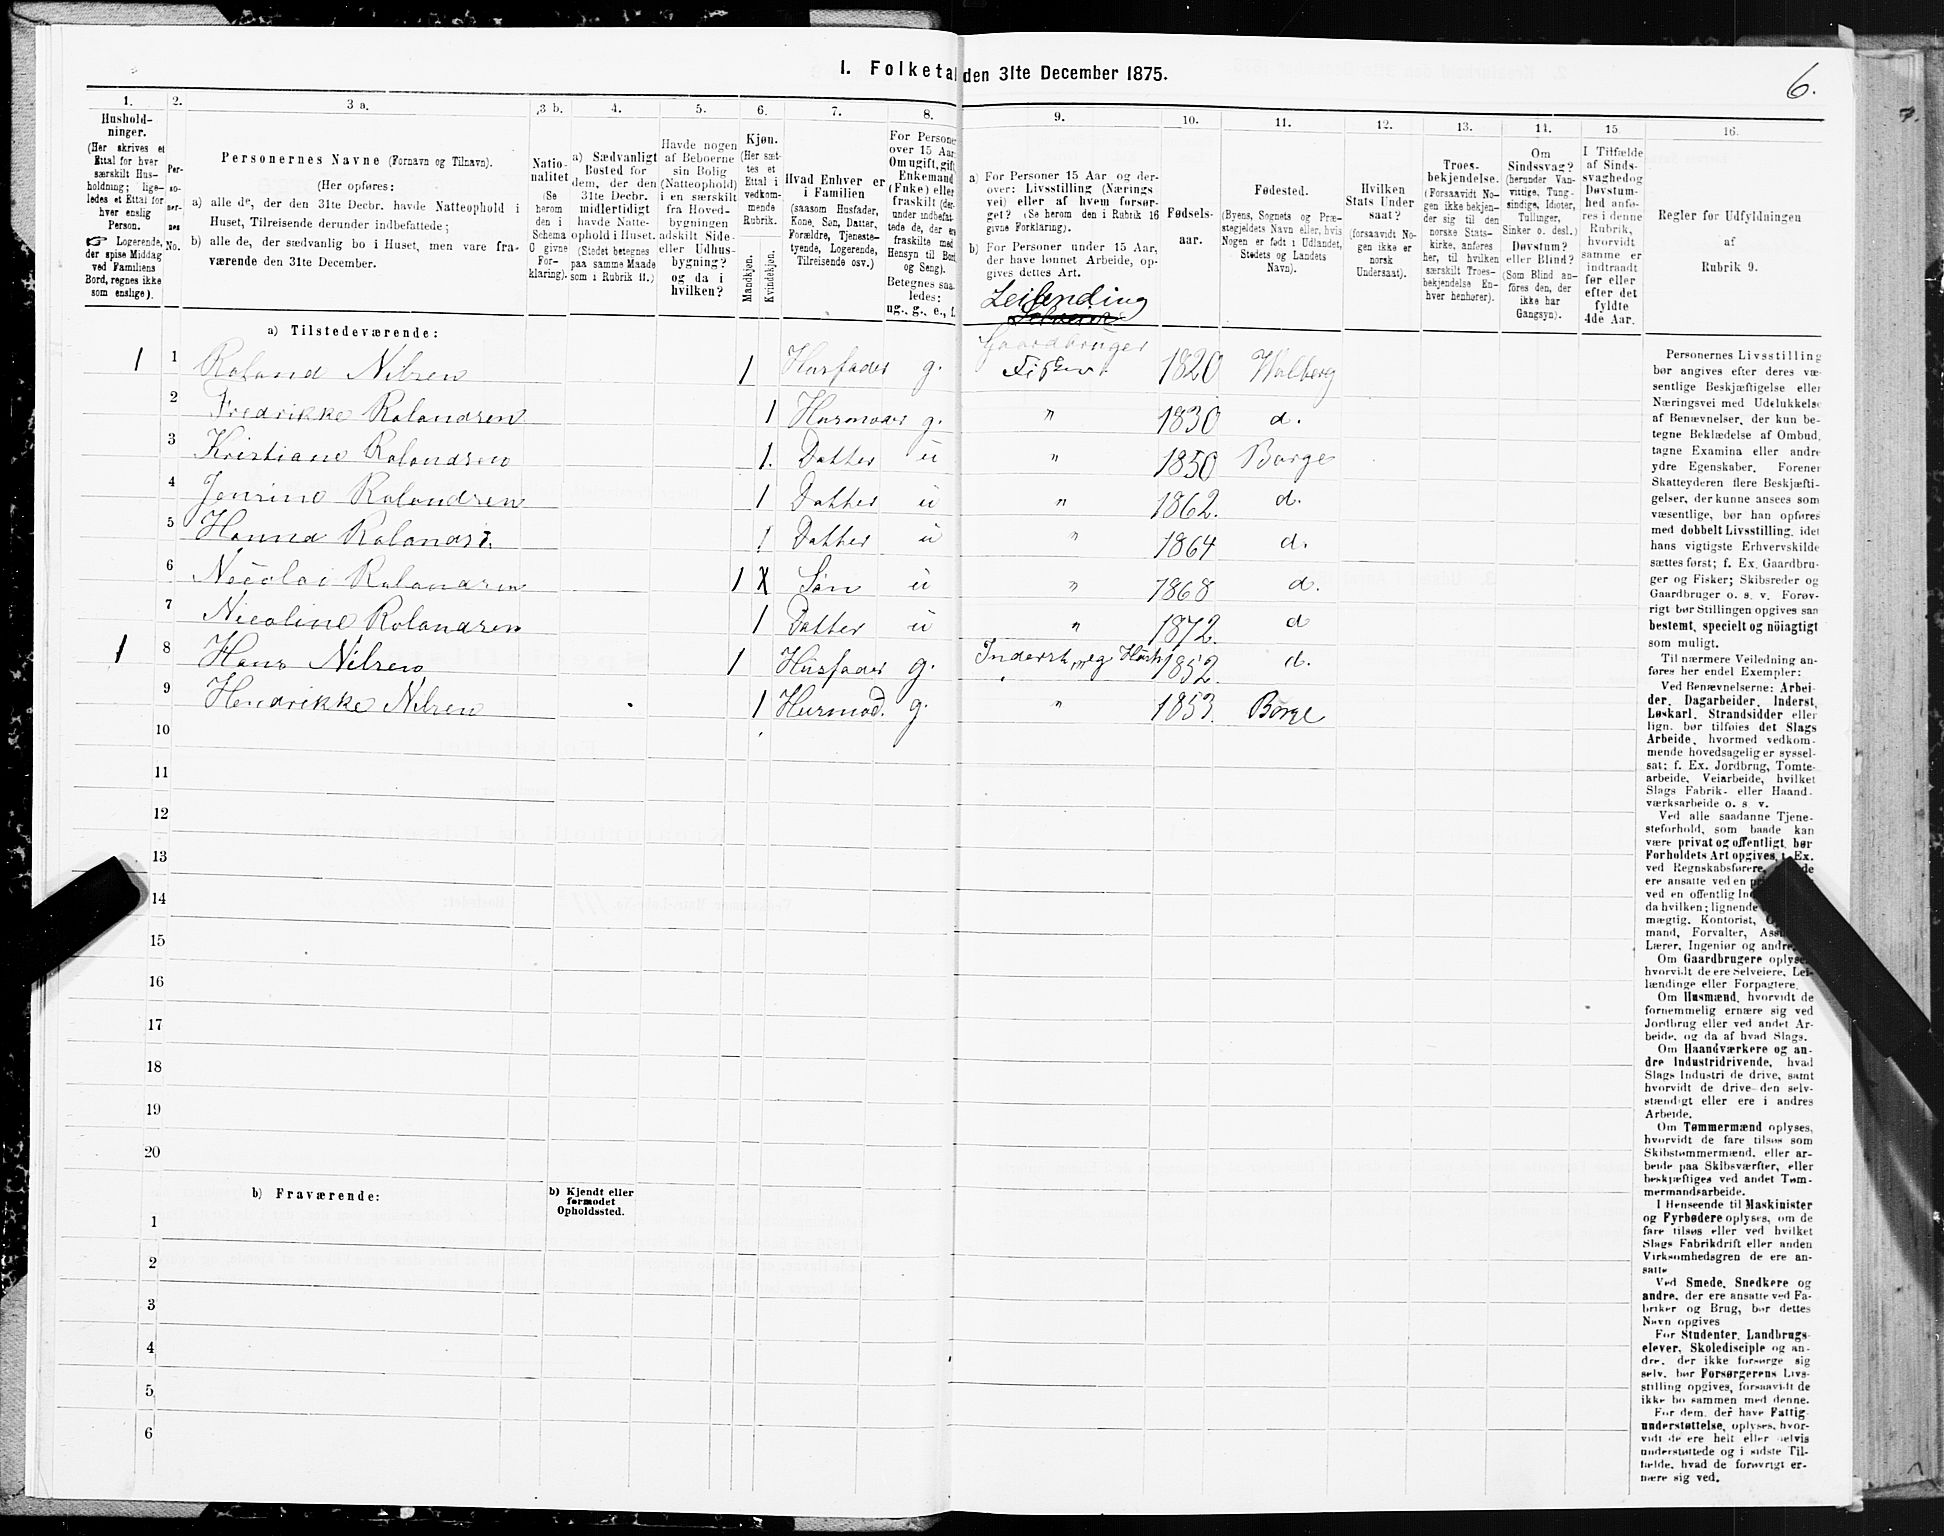 I. Folketal den 31te December 1875.
6.
7.
1.
Hushold-
ninger.
(Her skrives et
Ettal for hver
særskilt Hus-
holdning; lige-
ledes et Ettal for
hver enslig
Person.
☞ Logerende,
der spise Middag
ved Familiens
Bord, regnes ikke
som enslige).
2.
Per-
so-
ner-
nes
No.
3 a.
Personernes Navne (Fornavn og Tilnavn).
(Her opføres:
a) alle de, der den 31te Decbr. havde Natteophold i
Huset, Tilreisende derunder indbefattede;
b) alle de, der sædvanlig bo i Huset, men vare fra-
værende den 31te December.
3 b.
Natio-
nalitet
(Se
herom
den i
Schema
C givne
For-
klaring).
4.
a) Sædvanligt
Bosted for
dem, der den
31te Decbr.
midlertidigt
havde Natte-
ophold i Huset.
(Stedet betegnes
paa samme Maade
som i Rubrik 11.)
5.
Havde nogen
af Beboerne
sin Bolig
(Natteophold)
i en særskilt
fra Hoved-
bygningen
adskilt Side-
eller Udhus-
bygning?
og da i
hvilken?
6.
Kjøn.
(Her sæt-
tes et
Ettal i
vedkom-
mende
Rubrik.
Mandkjøn.
Kvindekjøn.
7.
Hvad Enhver er
i Familien
(saasom Husfader,
Kone, Søn, Datter,
Forældre, Tjeneste-
tyende, Logerende,
Tilreisende osv.)
8.
For Personer
over 15 Aar:
Om ugift, gift,
Enkemand
(Enke) eller
fraskilt (der-
under indbefat-
tede de, der ere
fraskilte med
Hensyn til Bord
og Seng).
Betegnes saa-
ledes:
ug., g., e., f.
9.
a) For Personer 15 Aar og der-
over: Livsstilling (Nærings
vei) eller af hvem forsør-
get? (Se herom den i Rubrik 16
givne Forklaring).
b) For Personer under 15 Aar,
der have lønnet Arbeide, op-
gives dettes Art.
10.
Fødsels-
aar.
11.
Fødested.
(Byens, Sognets og Præ-
stegjeldets Navn eller, hvis
Nogen er født i Udlandet,
Stedets og Landets
Navn).
12.
Hvilken
Stats Under
saat?
(forsaavidt No-
gen ikke er
norsk
Undersaat).
13.
Troes-
bekjendelse.
(Forsaavidt No-
gen ikke bekjen-
der sig til den
norske Stats-
kirke, anføres
her, til hvilken
særskilt Troes-
bekjendelse En-
hver henhører).
14.
Om
Sindssvag?
(herunder Van-
vittige, Tung-
sindige, Idioter,
Tullinger,
Sinker o. desl.)
Døvstum?
eller Blind?
(Som Blind an-
føres den, der
ikke har
Gangsyn).
15.
I Tilfælde
af Sinds-
svaghed og
Døvstum-
hed anfø-
res i denne
Rubrik,
hvorvidt
samme er
indtraadt
før eller
efter det
fyldte
4de Aar.
16.
Regler for Udfyldningen
af
Rubrik 9.
a) Tilstedeværende:
Leilending
Gaardbruger
1 1 Roland Nilsen 1 Husfader g. Fisker 1820 Walberg
2 Fredrikke Rolandsen 1 Husmoder g. " 1830 d.
3 Kristiane Rolandsen 1. Datter u " 1850 Borge
4 Jensine Rolandsen 1 Datter u " 1862. d.
5 Hanna Rolands. 1 Datter u " 1864 d.
6 Nicolai Rolandsen 1 X Søn u " 1868 d.
7 Nicoline Rolandsen 1 Datter u " 1872. d
1 8 Hans Nilsen 1 Husfader g. Inderst 1852. d.
9 Hendrikke Nilsen 1 Husmod. g. " 1853. Borge
10
11
12
13
14
15
16
17
18
19
20
b) Fraværende:
b) Kjendt eller
formodet
Opholdssted.
1
2
3
4
5
6
Personernes Livsstilling
bør angives efter deres væ-
sentlige Beskjæftigelse eller
Næringsvei med Udelukkelse
af Benævnelser, der kun be-
tegne Beklædelse af Ombud,
tagne Examina eller andre
ydre Egenskaber. Forener
Skatteyderen flere Beskjæfti-
gelser, der kunne ansees som
væsentlige, bør han opføres
med dobbelt Livsstilling, idet
hans vigtigste Erhvervskilde
sættes først; f. Ex. Gaardbru-
ger og Fisker; Skibsreder og
Gaardbruger o. s. v. Forøv-
rigt bør Stillingen opgives saa
bestemt, specielt og nöiagtigt
som muligt.
Til nærmere Veiledning an-
føres her endel Exempler:
Ved Benævnelserne: Arbei-
der, Dagarbeider, Inderst,
Løskarl, Strandsidder eller
lign. bør tilføies det Slags
Arbeide, hvormed vedkom-
mende hovedsagelig er syssel-
sat; f. Ex. Jordbrug, Tomte-
arbeide, Veiarbeide, hvilket
Slags Fabrik- eller Haand-
værksarbeide o. s. v.
Ved alle saadanne Tjene-
steforhold, som baade kan
være privat og offentligt, bør
Forholdets Art opgives, f. Ex.
ved Regnskabsførere,
ere ansatte ved en
ved en offentlig
da hvilken; lignende
mægtig, Kontorist,
mand, Forvalter,
Lærer, Ingeniør og andre.
Om Gaardbrugere oplyses,
hvorvidt de ere Selveiere, Lei-
lændinge eller Forpagtere.
Om Husmænd, hvorvidt de
fornemmelig ernære sig ved
Jordbrug eller ved andet Ar-
beide, og da af hvad Slags.
Om Haandværkere og an-
dre Industridrivende, hvad
Slags Industri de drive, samt
hvorvidt de drive den selv-
stændigt eller ere i andres
Arbeide.
Om Tømmermænd oplyses,
hvorvidt de fare tilsøs som
Skibstømmermænd, eller ar-
beide paa Skibsværfter, eller
beskjæftiges ved andet Tøm-
mermandsarbeide.
I Henseende til Maskinister
og Fyrbødere oplyses, om de
fare tilsøs eller ved hvilket
Slags Fabrikdrift eller anden
Virksomhedsgren de ere an-
satte
Ved Smede, Snedkere og
andre, der ere ansatte ved Fa-
briker og Brug, bør dettes
Navn opgives
For Studenter, Landbrugs-
elever, Skoledisciple og an-
dre, der ikke forsørge sig
selv, bør Forsørgerens Livs-
stilling opgives, forsaavidt de
ikke bo sammen med denne.
For dem, der have Fattig-
understøttelse, oplyses, hvor-
vidt de ere helt eller delvis
understøttede og i sidste Til-
fælde, hvad de forøvrigt er-
nære sig ved.